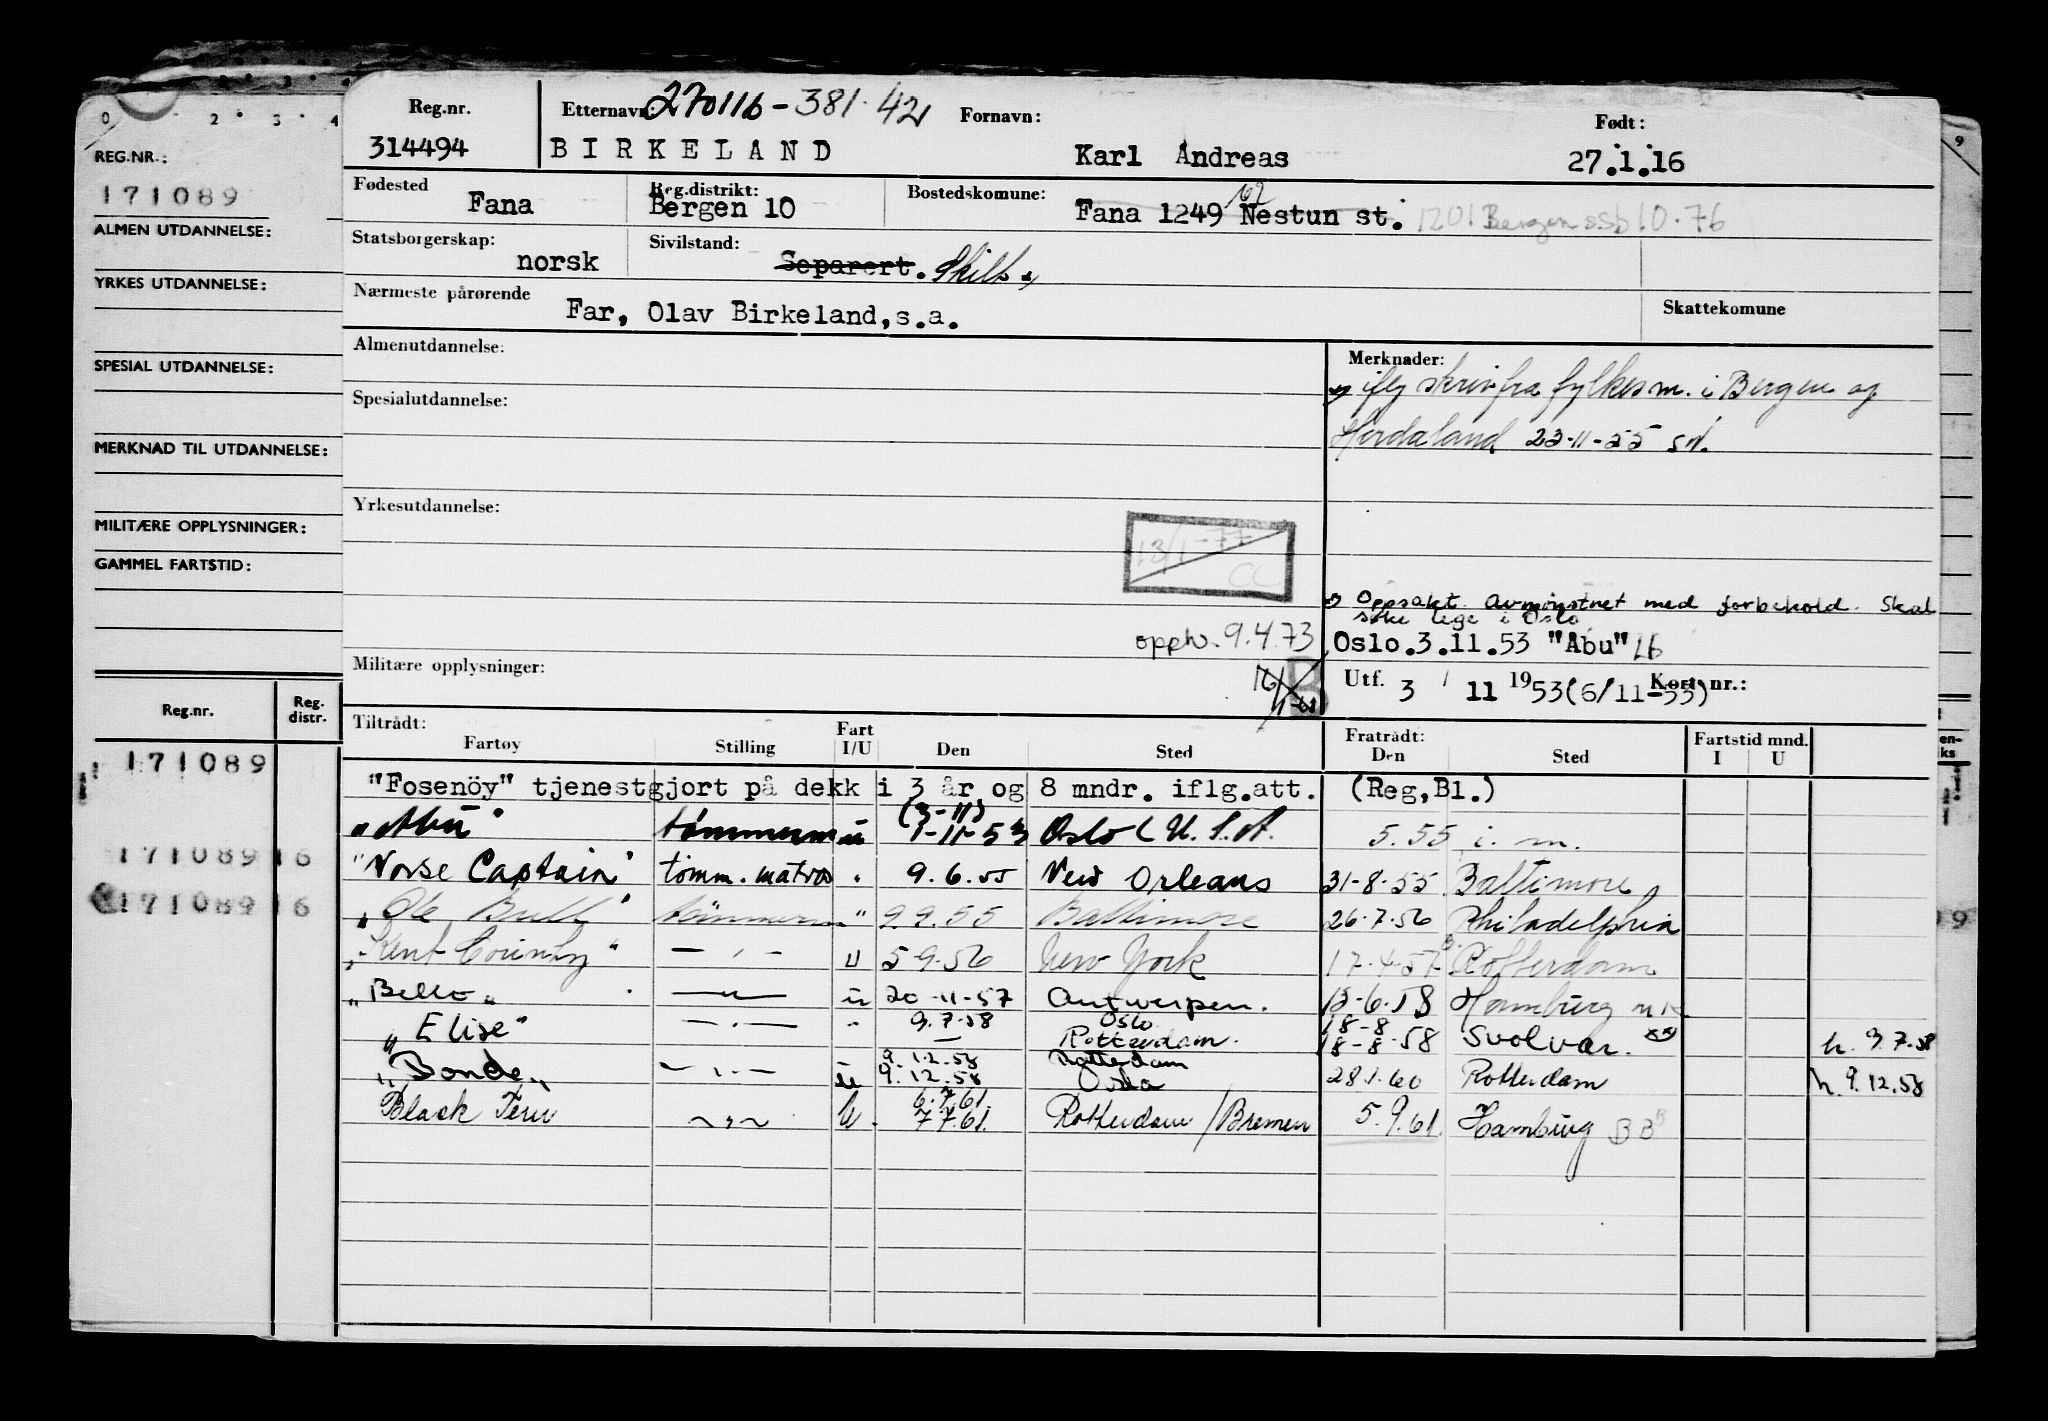 0 2 3 4
REG.NR.:
171089
ALMEN UTDANNELSE:
YRKES UTDANNELSE:
SPESIAL UTDANNELSE:
MERKNAD TIL UTDANNELSE:
MILITÆRE OPPLYSNINGER:
GAMMEL FARTSTID:
Reg.nr. Reg. distr.
171089
171089 16
171089 16
Reg.nr. Etternavn: 270116-381.42 Fornavn: Født: 9
314494 BIRKELAND Karl Andreas 27.1.16
Fødested Reg.distrikt: Bostedskomune: 62
Fana Bergen 10 Fana 1249 Nestun st. 1201 Bergen ssb 10.76
Statsborgerskap: Sivilstand:
norsk Separert. Skilt x)
Nærmeste pårørende Skattekomune
Far, Olav Birkeland,s.a.
Almenutdannelse: Merknader:
x) iflg skriv fra fylkesm. i Bergen og
Spesialutdannelse:
Hordaland 23-11-55
Yrkesutdannelse:
13/1-77
CC
Oppsakt. Avmønstret med forbehold. Skal
søke lege i Oslo
opph. 9.4.73 Oslo.3.11.53 "Abu"
Militære opplysninger: B Utf. 3 / 11 1953(6/11-53) Kort nr.:
Tiltrådt: Fart Fratrådt: Fartstid mnd.
Fartøy Stilling I/U Den Sted Den Sted I U
"Fosenöy" tjenestgjort på dekk i 3 år og 8 mndr. iflg.att. (Reg,Bl.)
(3-11)
"Abu" tømmerm u 1-11-53 Oslo (U.S.A. 5.55 i. m.
"Norse Captain" tømm.matros " 9.6.55 New Orleans 31-8-55 Baltimore
"Ole Bull" tømmerm " 9.9.55 Baltimore 26.7.56 Philadelphia
"Kent County" — " — u 5-9.56 New York 17.4.57 Rotterdam
"Bello" — " — u 20-11-57 Antwerpen. 13-6.58 Hamburg
9.7.58 Oslo 18-8
"Elise" — " — " — Rotterdam. 18-8-58 Svolvær. xx) h. 3.7.58
9.12.58 Rotterdam
"Bonde" — " — u 9.12.58 Oslo 28.1.60 Rotterdam h. 9.12.58
6.7.61
Black Tern ~ " ~ U. 7.7.61. Rotterdam / Bremen 5.9.61. Hamburg BB